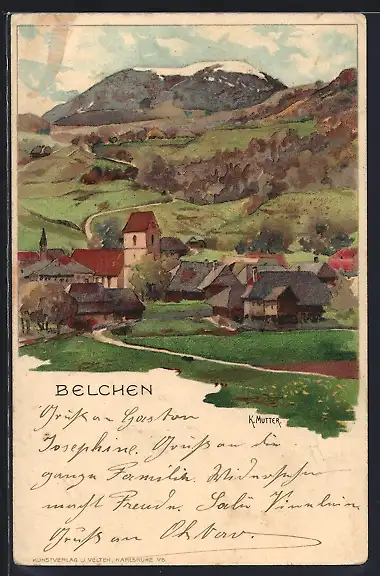 BELCHEN
K. MUTTER.
Gruß an Gaston
Josephine. Gruß an die
ganze Familie. Wiedersehn
macht Freude.
Gruß an
KUNSTVERLAG J. VELTEN, KARLSRUHE i/B.